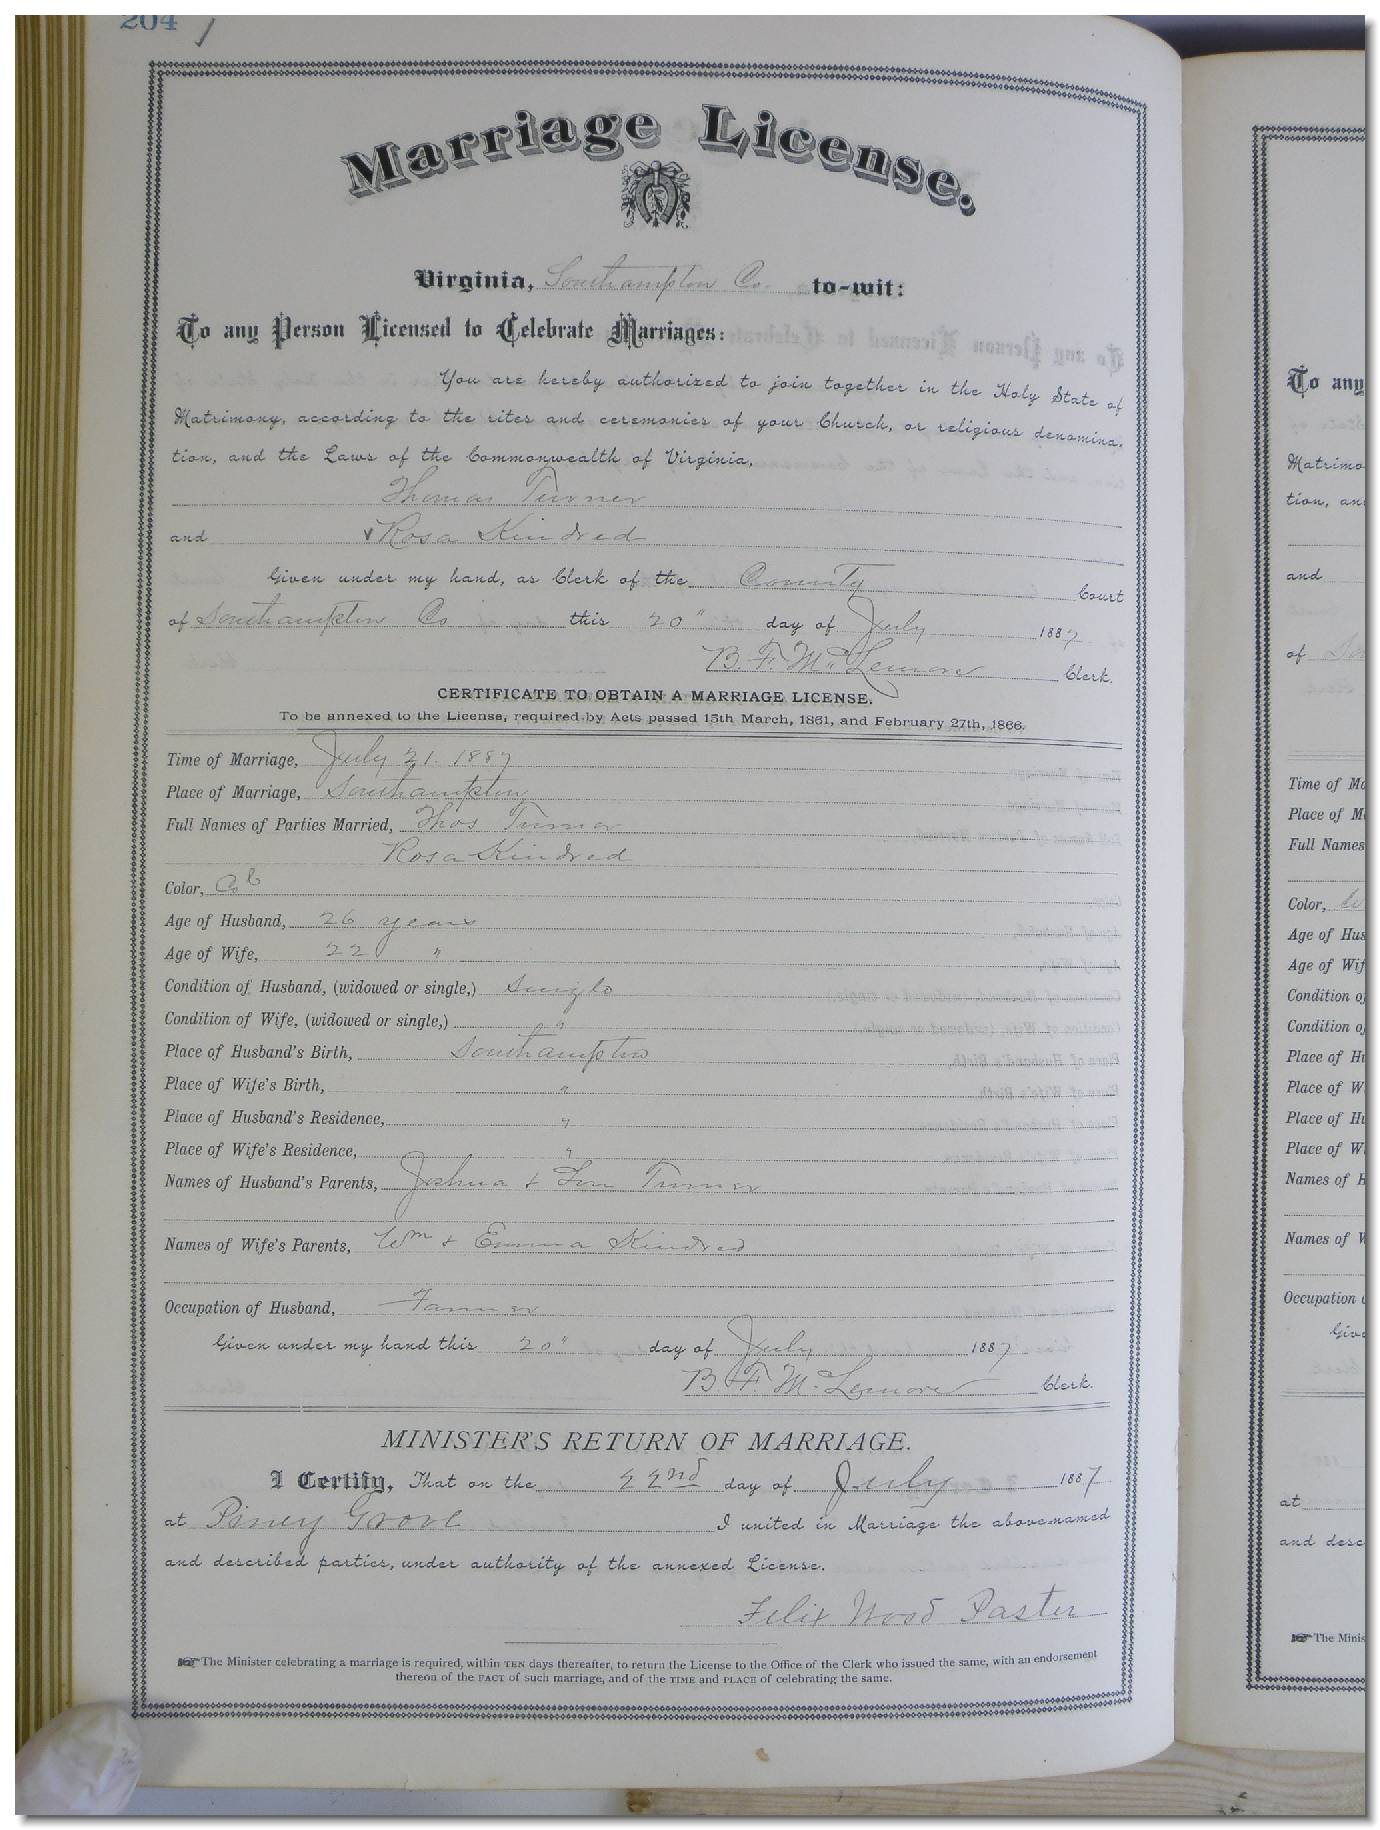 204
Marriage License.
Virginia, Southampton Co. to-wit:
To any Person Licensed to Celebrate Marriages:
You are hereby authorized to join together in the Holy State of
Matrimony, according to the rites and ceremonies of your Church, or religious denomina-
tion, and the Laws of the Commonwealth of Virginia,
Thomas Turner
and Rosa Kindred
Given under my hand, as Clerk of the County Court
of Southampton Co this 20" day of July 1887
B. F. McLemore Clerk.
CERTIFICATE TO OBTAIN A MARRIAGE LICENSE.
To be annexed to the License, required by Acts passed 15th March, 1861, and February 27th, 1866.
Time of Marriage, July 21. 1887
Place of Marriage, Southampton
Full Names of Parties Married, Thos Turner
Rosa Kindred
Color, Col
Age of Husband, 26 years
Age of Wife, 22 "
Condition of Husband, (widowed or single,) Single
Condition of Wife, (widowed or single,) "
Place of Husband's Birth, Southampton
Place of Wife's Birth, "
Place of Husband's Residence, "
Place of Wife's Residence, "
Names of Husband's Parents, Joshua + Turner
Names of Wife's Parents, Wm + Emma Kindred
Occupation of Husband, Farmer
Given under my hand this 20" day of July 1887
B. F. McLemore Clerk.
MINISTER'S RETURN OF MARRIAGE.
I Certify, That on the 22nd day of July 1887
at Piney Grove I united in Marriage the above-named
and described parties, under authority of the annexed License.
Felix Wood Paster
The Minister celebrating a marriage is required, within TEN days thereafter, to return the License to the Office of the Clerk who issued the same, with an endorsement
thereon of the FACT of such marriage, and of the TIME and PLACE of celebrating the same.
To any
Matrimo
tion, an
and
of
Time of Ma
Place of M
Full Names
Color,
Age of Hus
Age of Wif
Condition o
Condition o
Place of Hu
Place of W
Place of Hu
Place of W
Names of H
Names of W
Occupation o
Give
at
and desc
The Minis